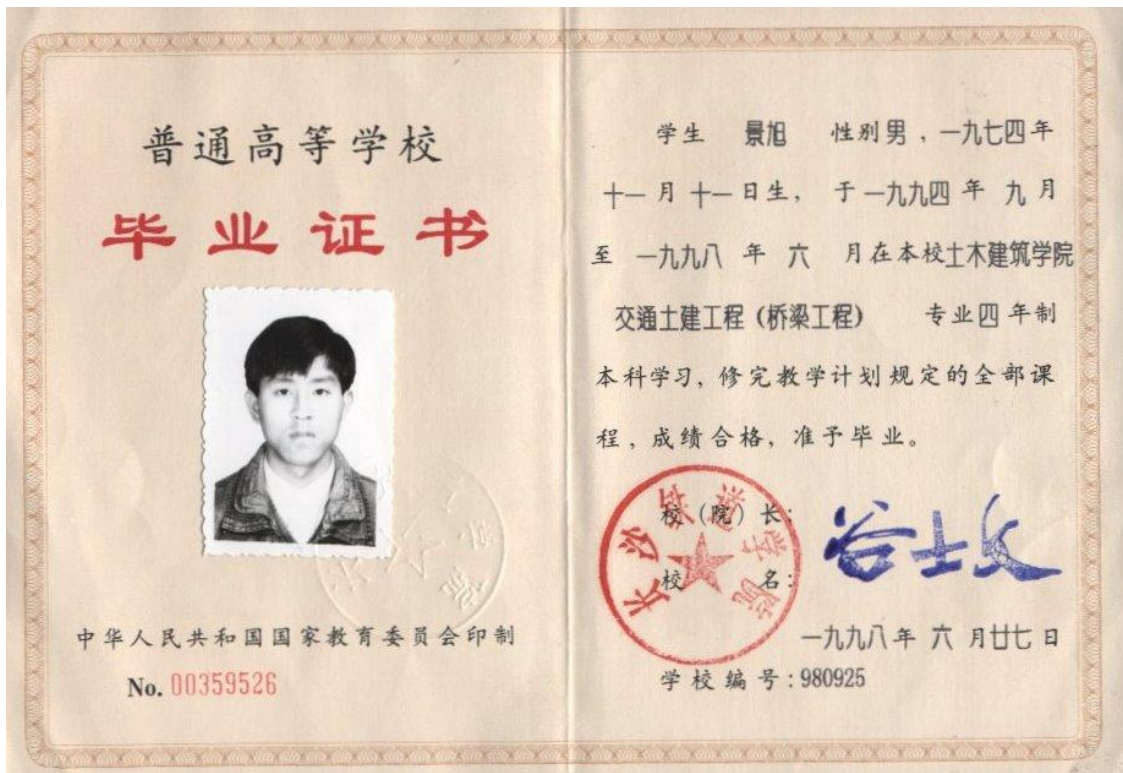 普通高等学校
毕业证书
中华人民共和国国家教育委员会印制
No. 00359526
学生 景旭 性别男，一九七四年
十一月十一日生，于一九九四年九月
至一九九八年六月在本校土木建筑学院
交通土建工程（桥梁工程） 专业四年制
本科学习，修完教学计划规定的全部课
程，成绩合格，准予毕业。
校（院）长：谷士文
校名：
长沙铁道学院
一九九八年六月廿七日
学校编号：980925